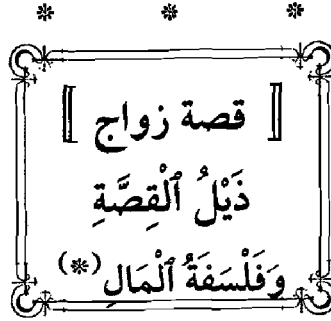 * * *
[ قصة زواج ]
ذَيْلُ ٱلْقِصَّةِ
وَفَلْسَفَةُ ٱلْمَالِ (*)